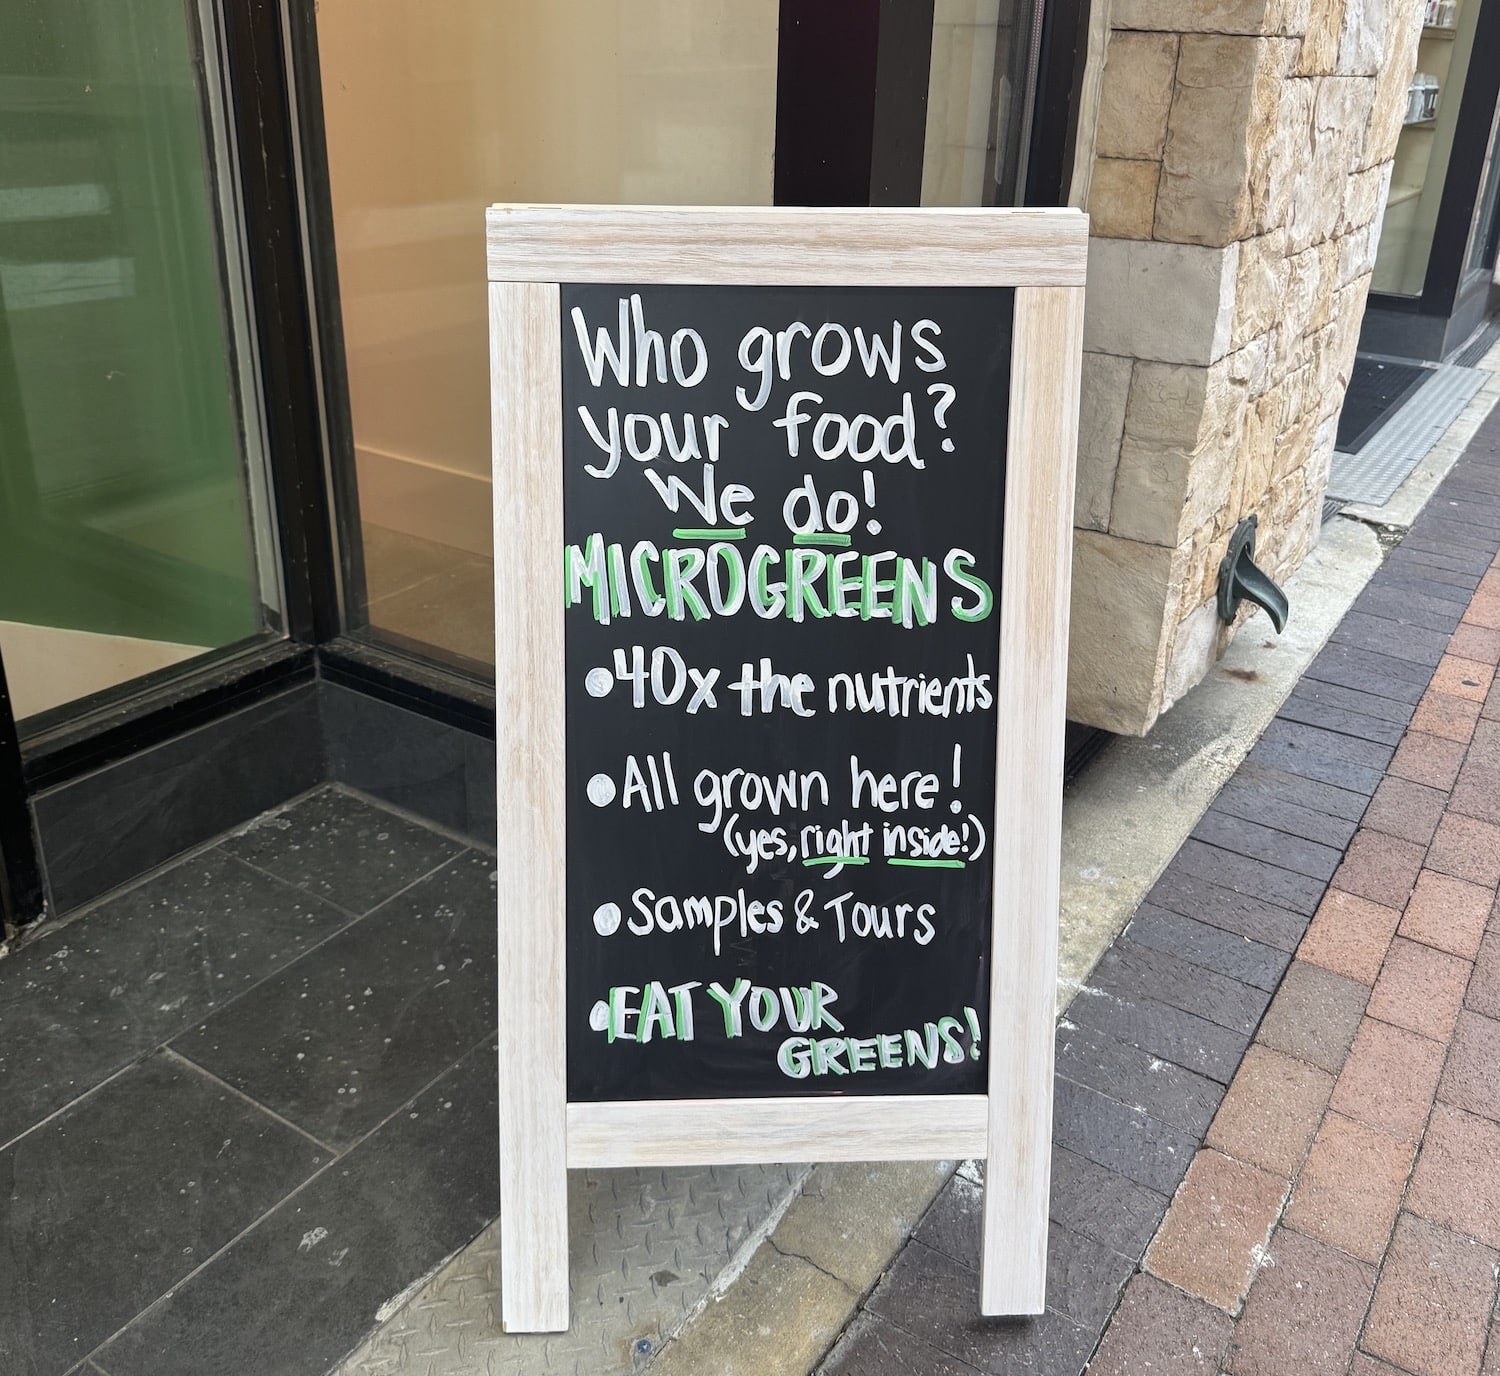 Who grows
your food?
We do!
MICROGREENS
• 40x the nutrients
• All grown here!
(yes, right inside!)
• Samples & Tours
• EAT YOUR
GREENS!